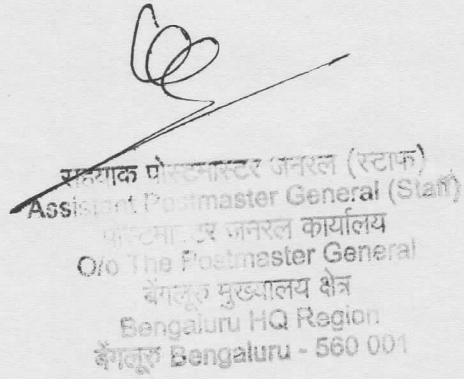 सहायक पोस्टमास्टर जनरल (स्टाफ)
Assistant Postmaster General (Staff)
पोस्टमास्टर जनरल कार्यालय
O/o The Postmaster General
बेंगलूरु मुख्यालय क्षेत्र
Bengaluru HQ Region
बेंगलूरु Bengaluru - 560 001